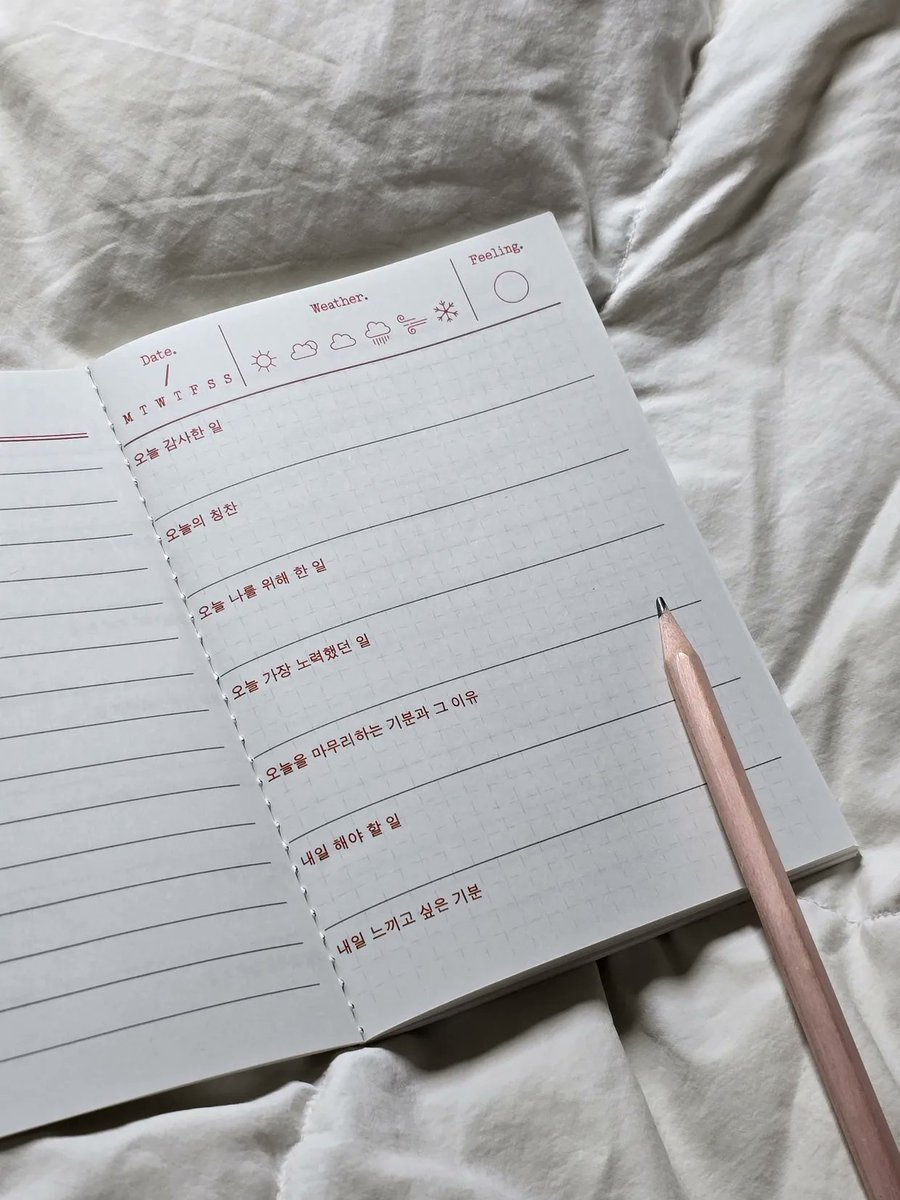 Date.
/
M T W T F S S
Weather.
Feeling.
오늘 감사한 일
오늘의 칭찬
오늘 나를 위해 한 일
오늘 가장 노력했던 일
오늘을 마무리하는 기분과 그 이유
내일 해야 할 일
내일 느끼고 싶은 기분